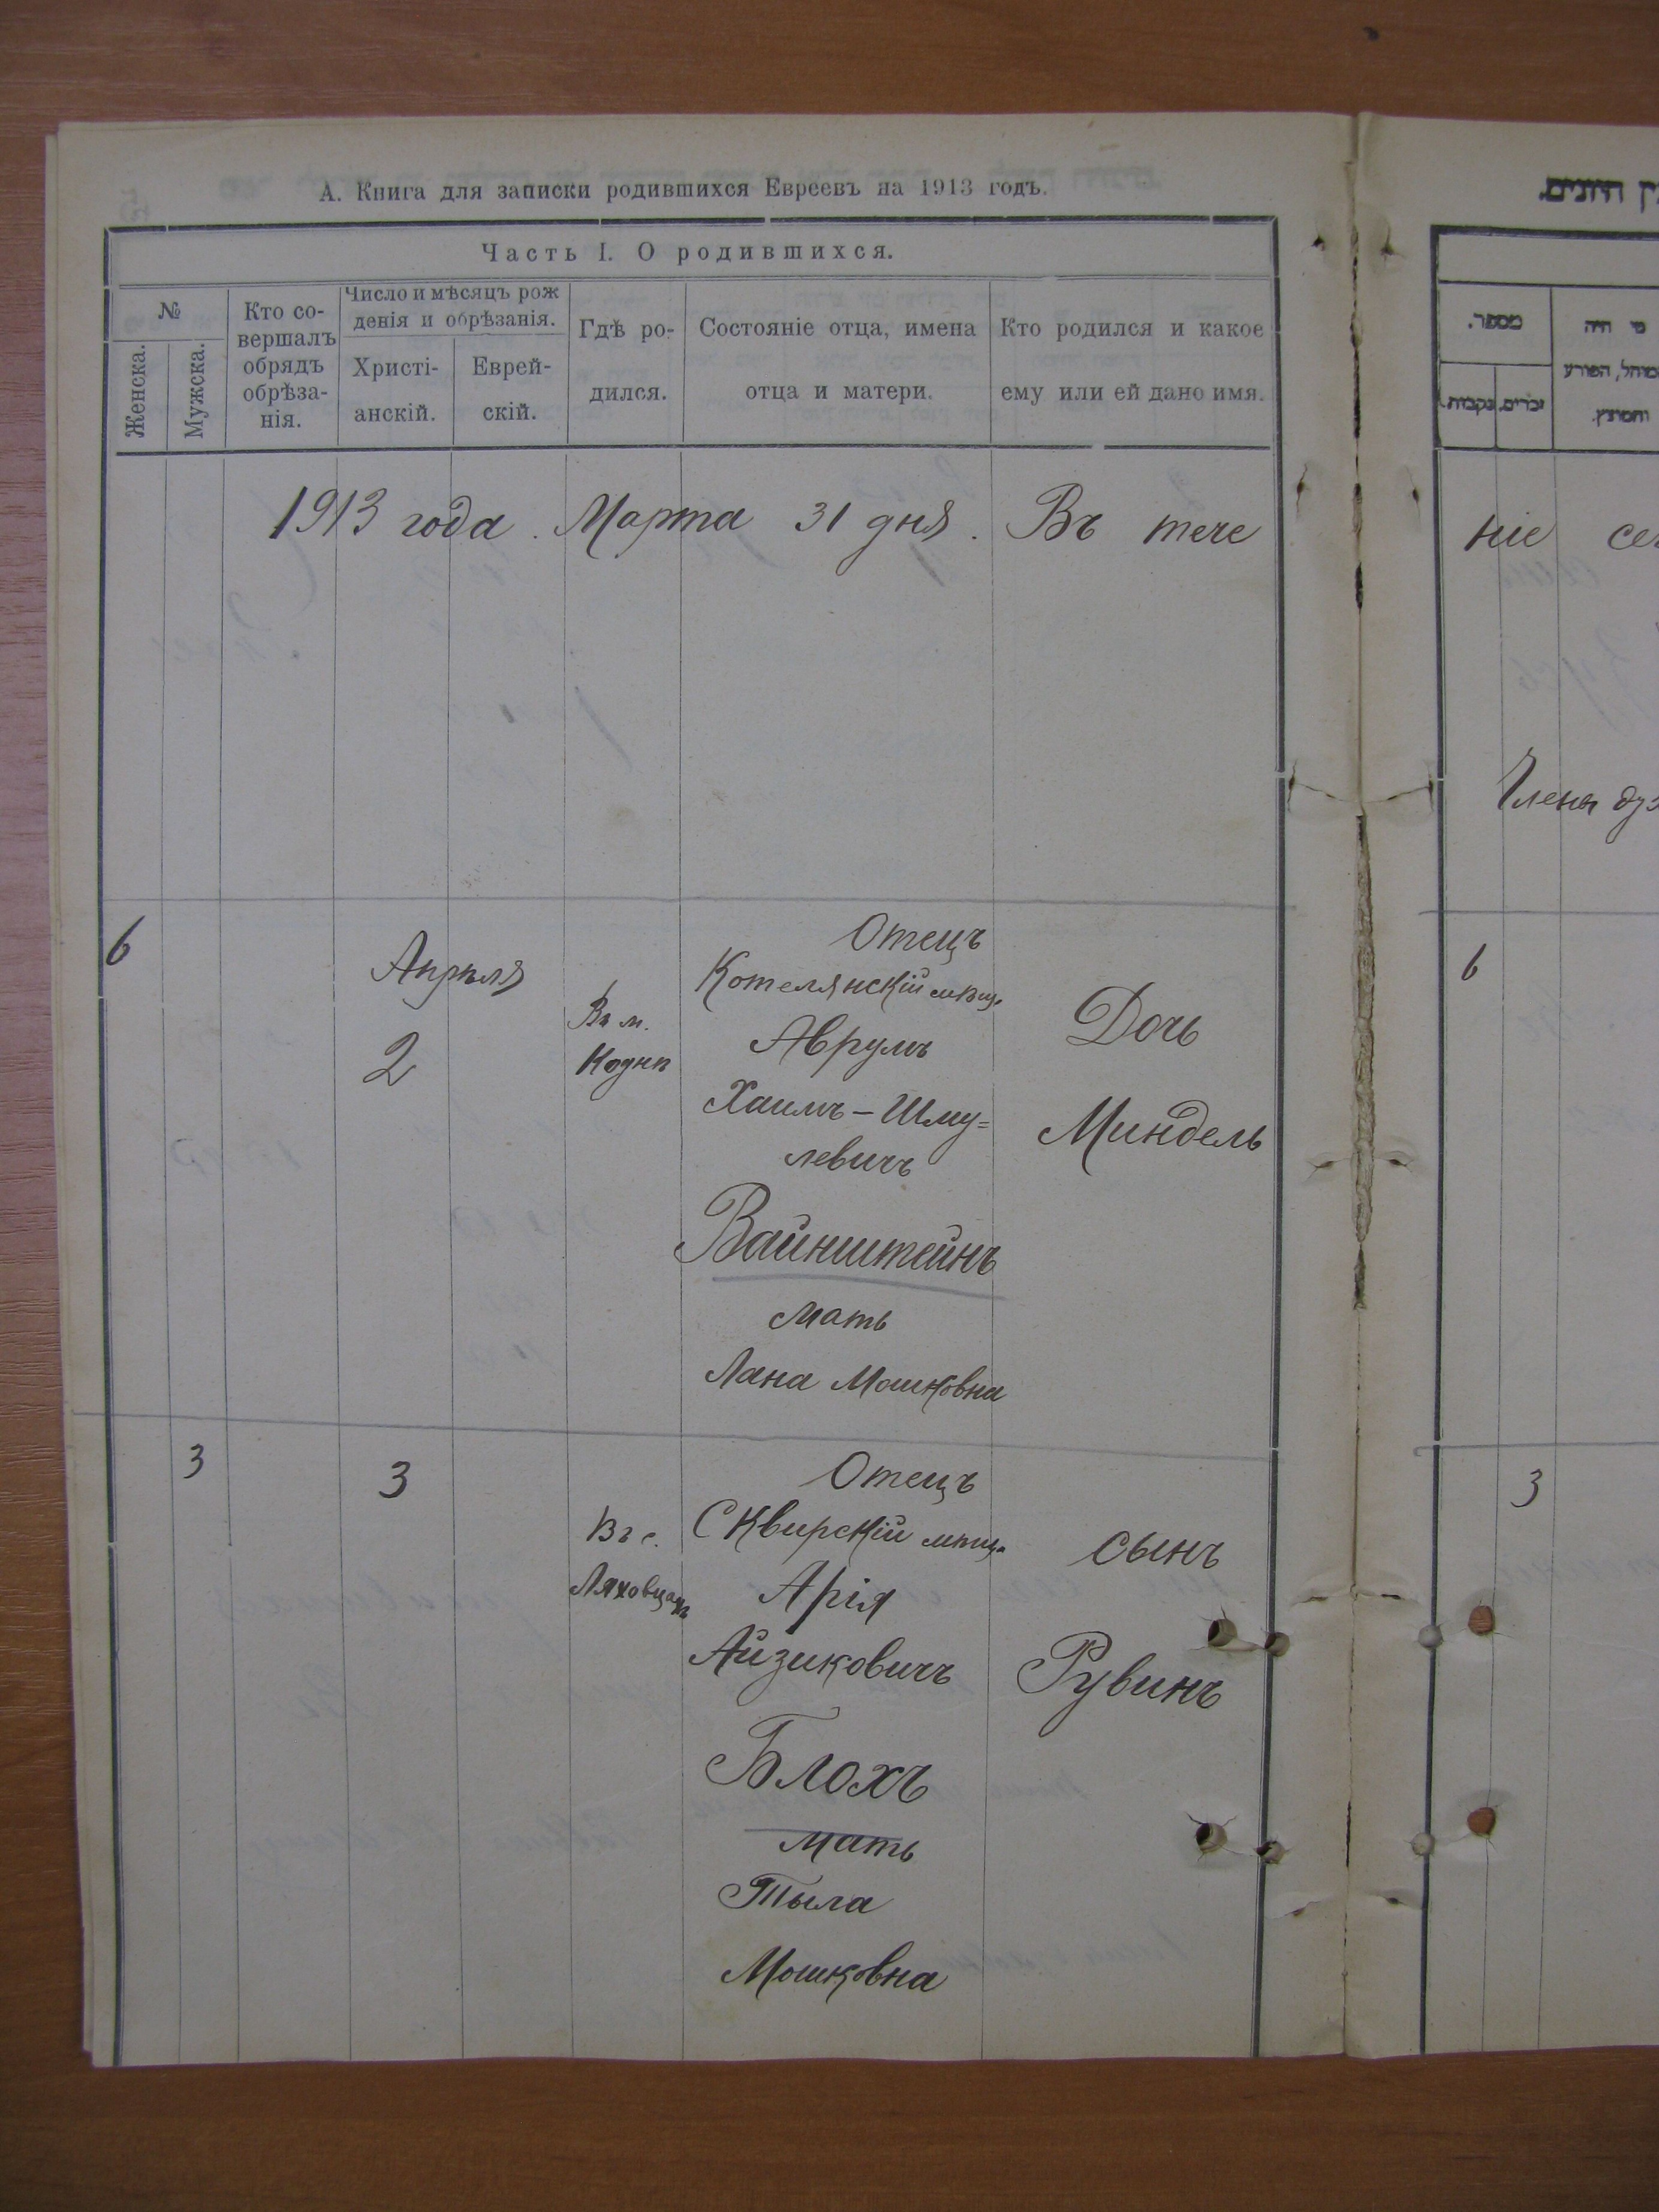 А. Книга для записки родившихся Евреевъ на 1913 годъ.
Часть I. О родившихся.
№
Женска.
Мужска.
Кто со-
вершалъ
обрядъ
обрѣза-
нія.
Число и мѣсяцъ рож
денія и обрѣзанія.
Христі-
анскій.
Еврей-
скій.
Гдѣ ро-
дился.
Состояніе отца, имена
отца и матери.
Кто родился и какое
ему или ей дано имя.
1913 года. Марта 31 дня. Въ тече
6
Апрѣля
2
Въ м.
Кодня
Отецъ
Котелянскій мѣщ.
Аврумъ
Хаимъ-Шму=
левичъ
Вайнштейнъ
мать
Лана Мошковна
Дочь
Миндель
3
3
Въ с.
Ляховцахъ
Отецъ
Сквирскій мѣщ.
Арія
Айзиковичъ
Блохъ
мать
Тыла
Мошковна
сынъ
Рувинъ
מספר.
נקבות
זכרים.
מי היה
המוהל, הפורע
והמוצץ.
ніе
Члены
6
3